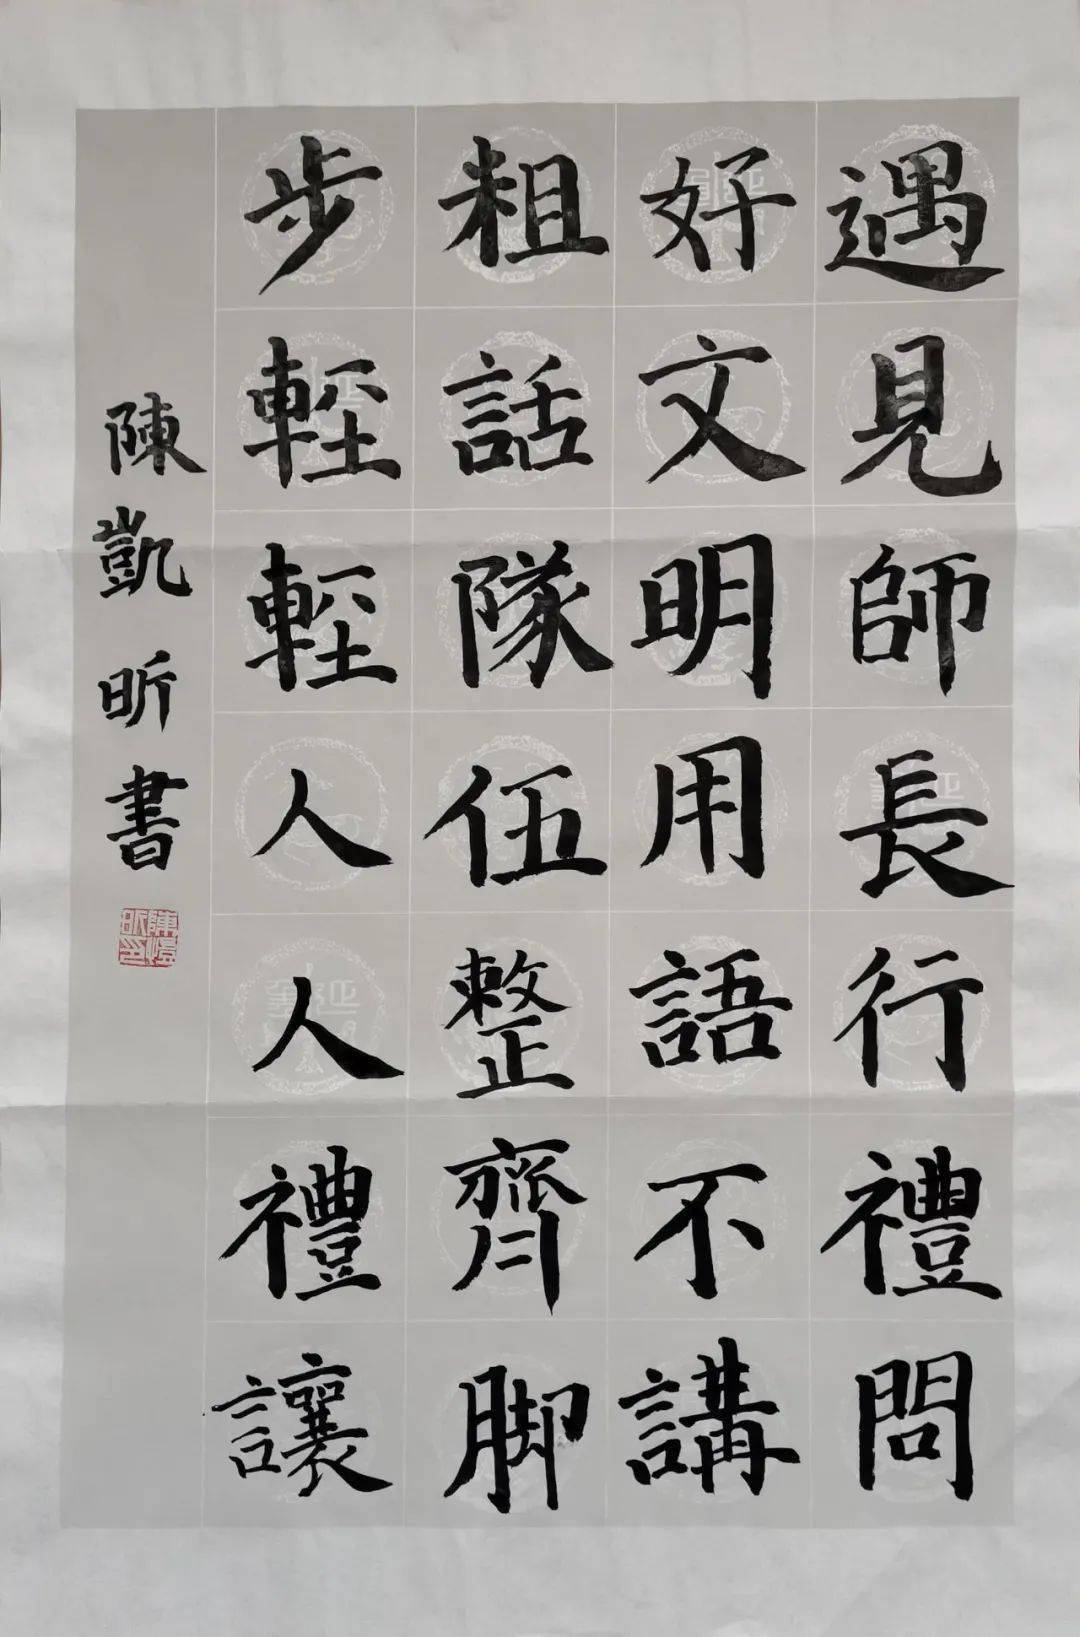 遇見師長行禮問
好文明用語不講
粗話隊伍整齊脚
步輕輕人人禮讓
陳凱昕書